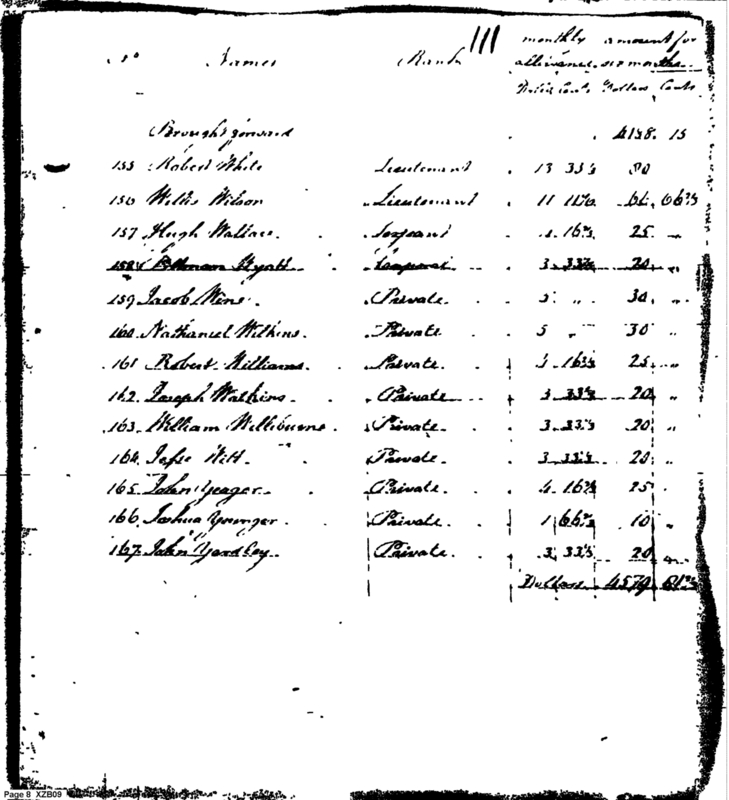 111
No Names Rank monthly allowance Dollars Cents amount for six months Dollars Cents
Brought forward . . 4158. 15
155 Robert White Lieutenant . 13 33⅓ 80
156 Willis Wilson Lieutenant . 11 11⅙ 66. 66⅔
157 Hugh Wallace. Serjeant . 4 16⅔ 25 "
158 Wyatt . . 3. 33⅓ 20. "
159 Jacob Wine . Private. . . 5 " 30. "
160 Nathaniel Wilkins. Private. . . 5 " 30 "
161 Robert Williams. Private. . 16⅔ 25. "
162. Joseph Watkins. . Private . . 3 33⅓ 20 "
163. William Welbourne . Private. . . 3. 33⅓ 20. "
164. Jesse Witt. . Private. . . 3. 33⅓ 20. "
165. John Yeager. . Private. . . 4. 16⅔ 25 "
166. Joshua Younger . Private. . . 1 66⅔ 10 "
167. John Yardley. Private. . . 3. 33⅓ 20 "
Dollars 4579 81⅔
Page 8 XZB09